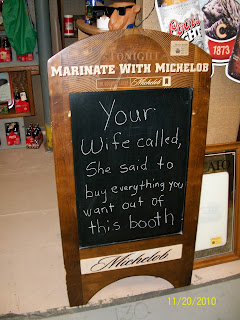 TONIGHT
MARINATE WITH MICHELOB
Michelob
Your
Wife called,
She said to
buy everything you
want out of
this booth
Michelob
Coors
LIGHT
1873
11/20/2010